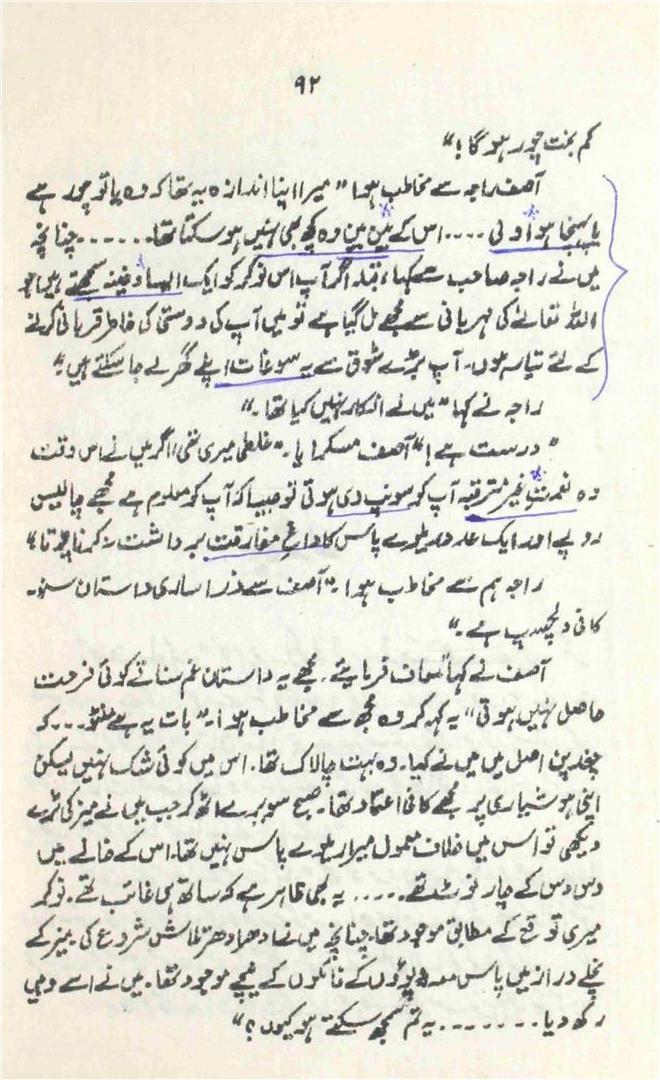 ۹۲
کم بخت چور ہو گا!"
آصف راجہ سے مخاطب ہوا "میرا اپنا اندازہ یہ تھا کہ وہ یا تو چور ہے
یا پہنچا ہوا ولی .... اس کے بین بین وہ کچھ بھی نہیں ہو سکتا تھا...... چنانچہ
میں نے راجہ صاحب سے کہا، قبلہ اگر آپ اس نوکر کو ایک ایسا دفینہ سمجھتے ہیں جو
اللہ تعالےٰ کی مہربانی سے مجھے مل گیا ہے تو میں آپ کی دوستی کی خاطر قربانی کرنے
کے لئے تیار ہوں۔ آپ بڑے شوق سے یہ سوغات اپنے گھر لے جا سکتے ہیں"
راجہ نے کہا "میں نے انکار نہیں کیا تھا۔"
"درست ہے!" آصف مسکرایا۔ "غلطی میری تھی اگر میں نے اس وقت
وہ نعمت غیر مترقبہ آپ کو سونپ دی ہوتی تو جیسا کہ آپ کو معلوم ہے مجھے چالیس
روپے اور ایک عدد ریلوے پاس کا داغِ مفارقت برداشت نہ کرنا پڑتا"
راجہ ہم سے مخاطب ہوا۔ "آصف سے ذرا ساری داستان سنو۔
کافی دلچسپ ہے۔"
آصف نے کہا "معاف فرمایئے۔ مجھے یہ داستان غم سناتے کوئی فرحت
حاصل نہیں ہوتی" یہ کہہ کر وہ مجھ سے مخاطب ہوا۔ "بات یہ ہے منٹو... کہ
چغد پن اصل میں میں نے کیا۔ وہ بہت چالاک تھا۔ اس میں کوئی شک نہیں لیکن
اپنی ہوشیاری پر مجھے کافی اعتماد تھا۔ صبح سویرے اٹھ کر جب میں نے میز کی ٹرے
دیکھی تو اس میں خلاف معمول میرا ریلوے پاس نہیں تھا۔ اس کے خانے میں
دس دس کے چار نوٹ تھے..... یہ بھی ظاہر ہے کہ ساتھ ہی غائب تھے۔ نوکر
میری توقع کے مطابق موجود تھا۔ چنانچہ میں نے دھڑا دھڑ تلاش شروع کی۔ میز کے
نچلے دراز میں پاس معہ نوٹوں کے فائلوں کے نیچے موجود تھا۔ میں نے اسے وہیں
رکھ دیا ........ یہ تم سمجھ سکتے ہو کیوں؟"